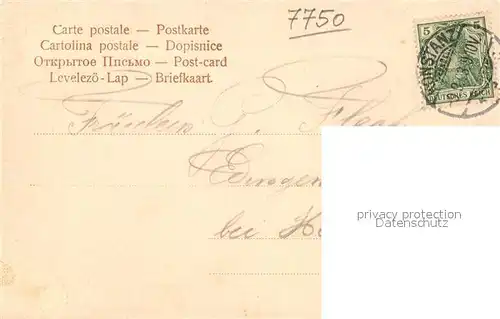 7750
Carte postale — Postkarte
Cartolina postale — Dopisnice
Открытое Письмо — Post-card
Levelező-Lap — Briefkaart.
5
KONSTANZ
DEUTSCHES REICH
Fräulein
bei
privacy protection
Datenschutz